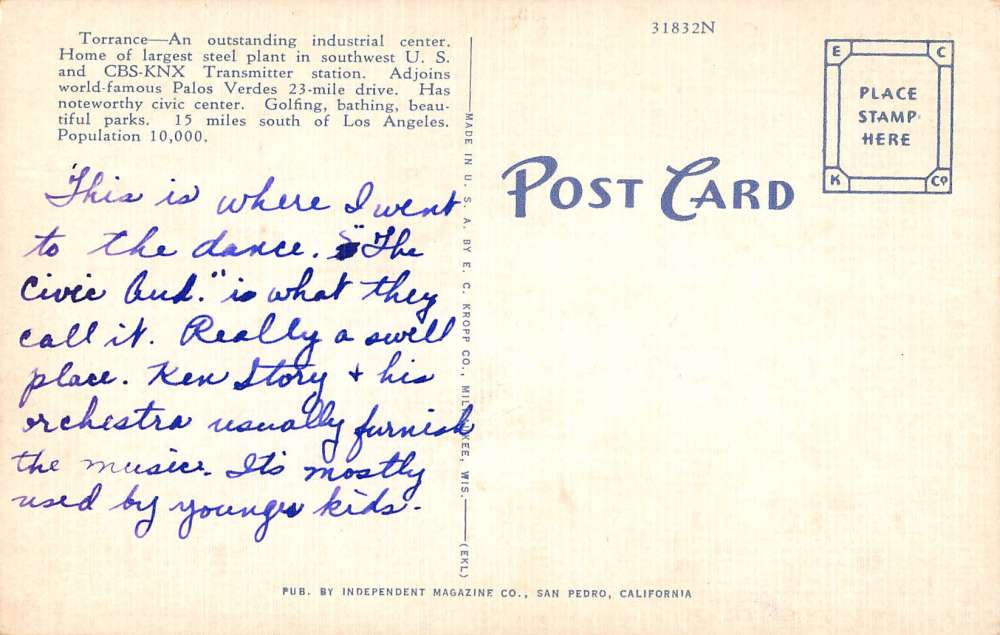 Torrance—An outstanding industrial center.
Home of largest steel plant in southwest U. S.
and CBS-KNX Transmitter station. Adjoins
world-famous Palos Verdes 23-mile drive. Has
noteworthy civic center. Golfing, bathing, beau-
tiful parks. 15 miles south of Los Angeles.
Population 10,000.
This is where I went
to the dance. "The
Civic Aud." is what they
call it. Really a swell
place. Ken Story + his
orchestra usually furnish
the music. It's mostly
used by younger kids.
—MADE IN U. S. A. BY E. C. KROPP CO., MILWAUKEE, WIS.—(EKL)
31832N
POST CARD
E C
PLACE
STAMP
HERE
K Co
PUB. BY INDEPENDENT MAGAZINE CO., SAN PEDRO, CALIFORNIA